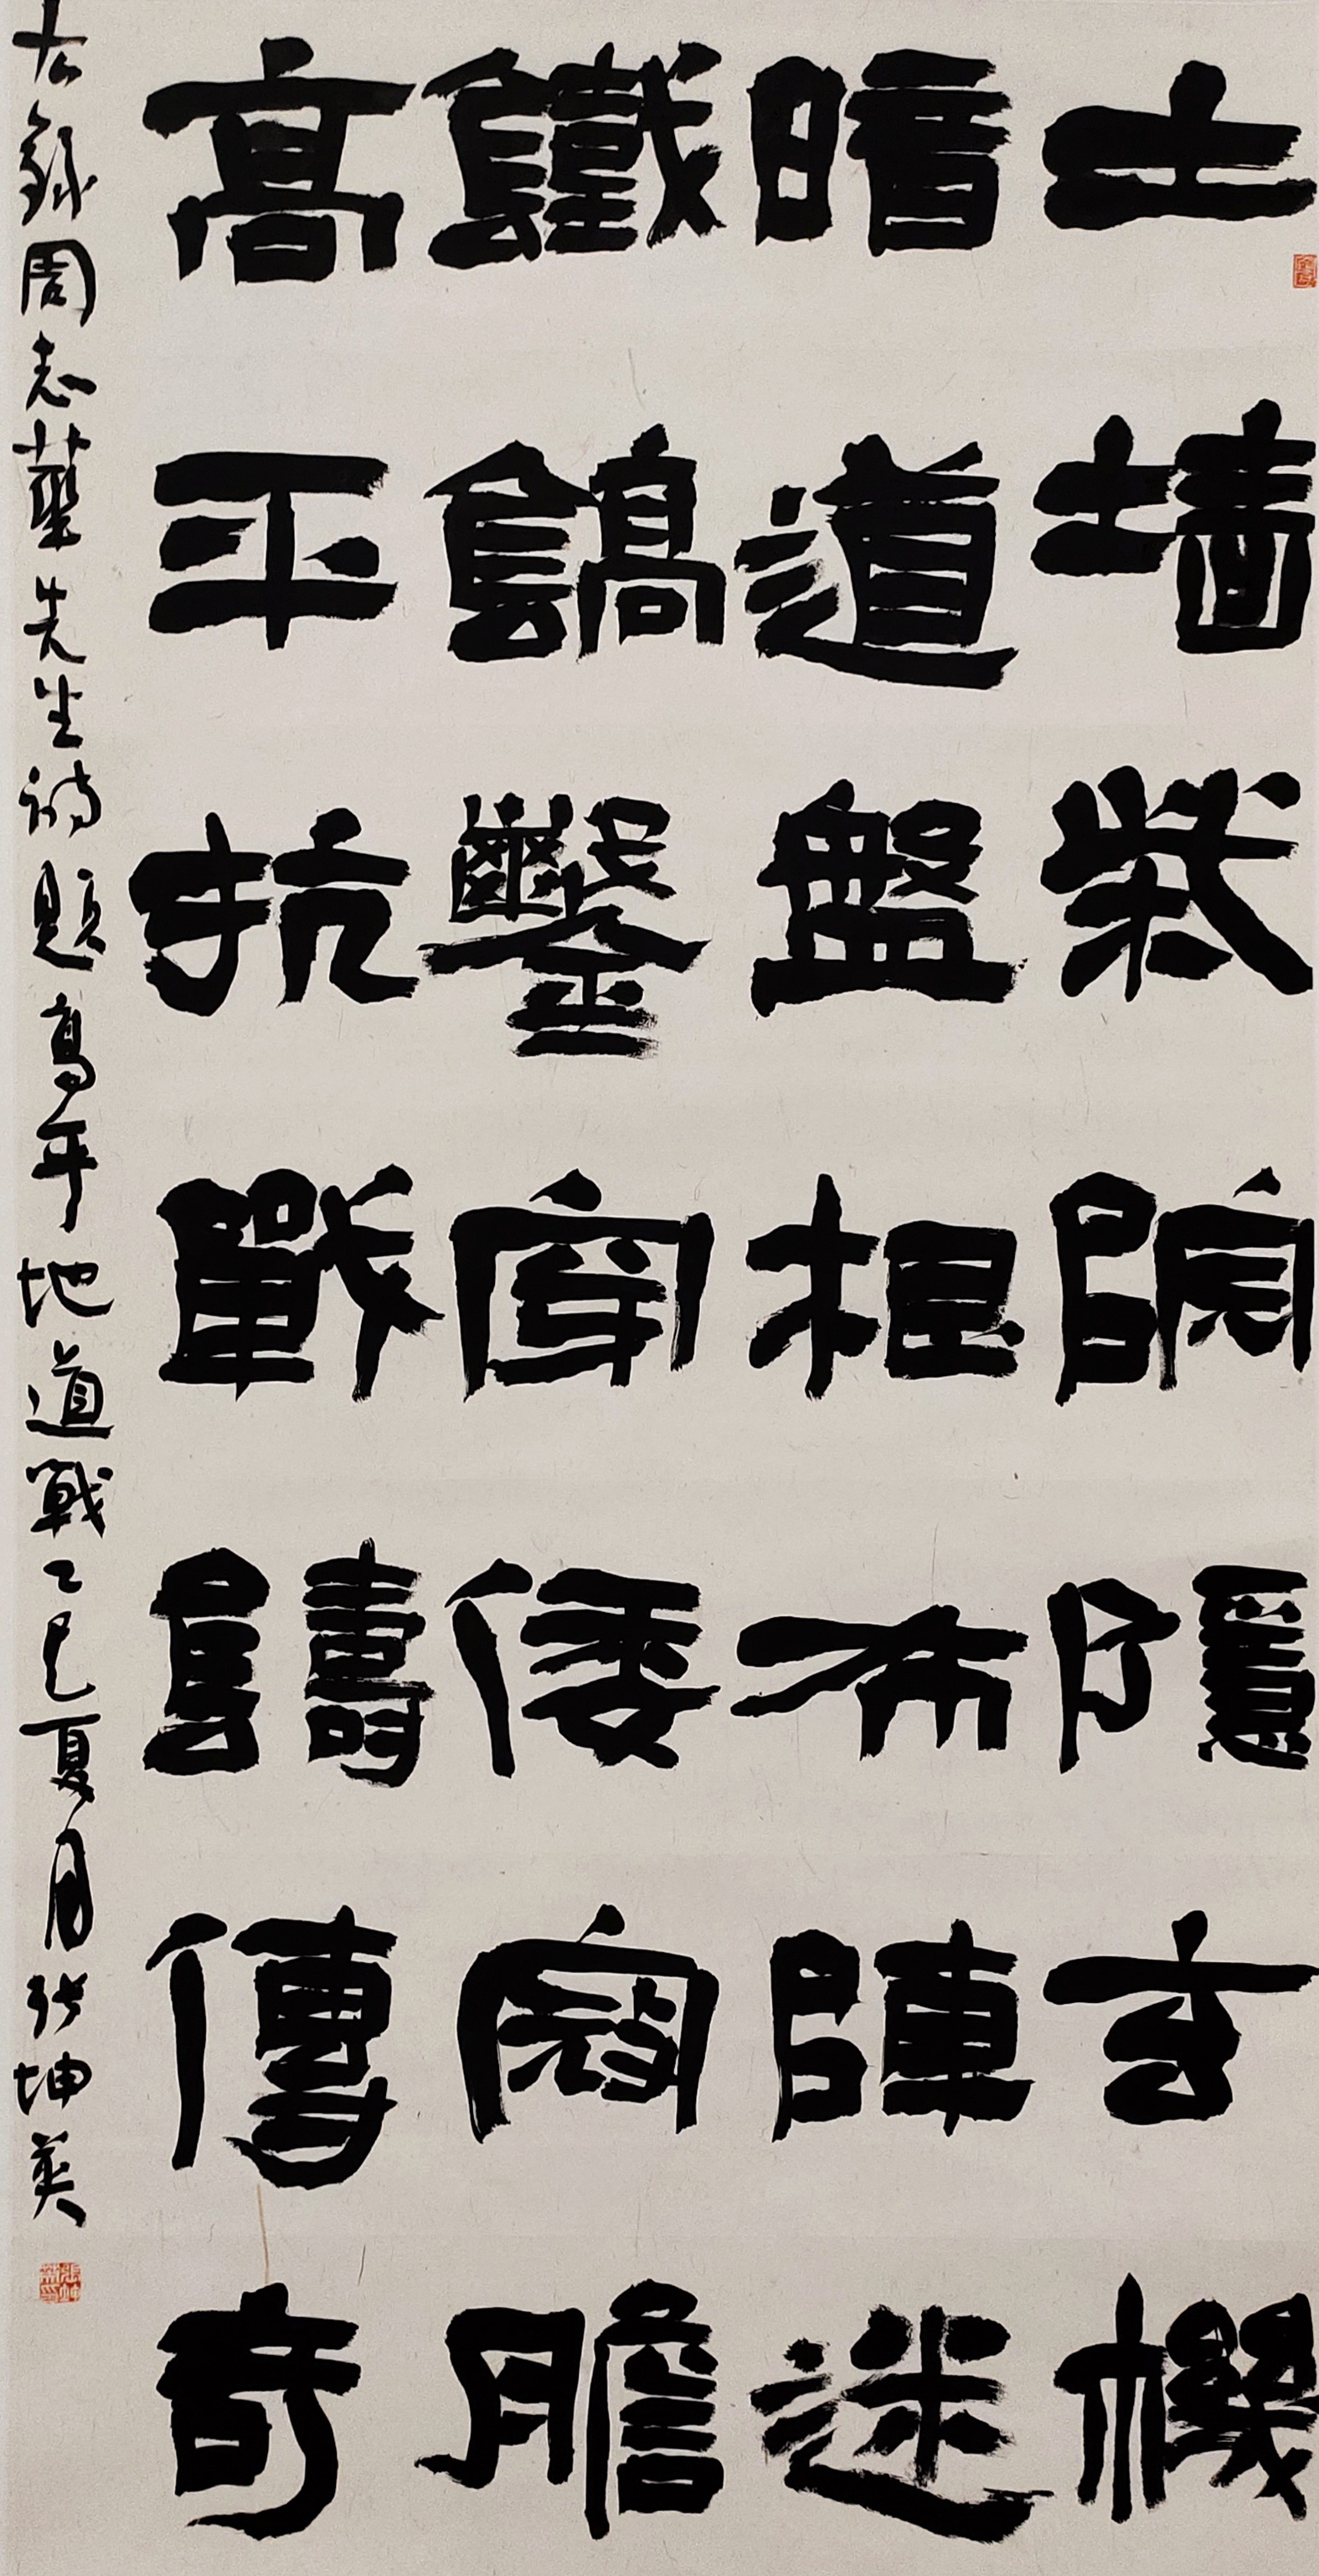 土墙柴院隱玄機
暗道盤根布陣迷
鐵鎬鑿穿倭寇膽
高平抗戰鑄傳奇
右錄周志華先生詩題高平地道戰乙巳夏月张坤英